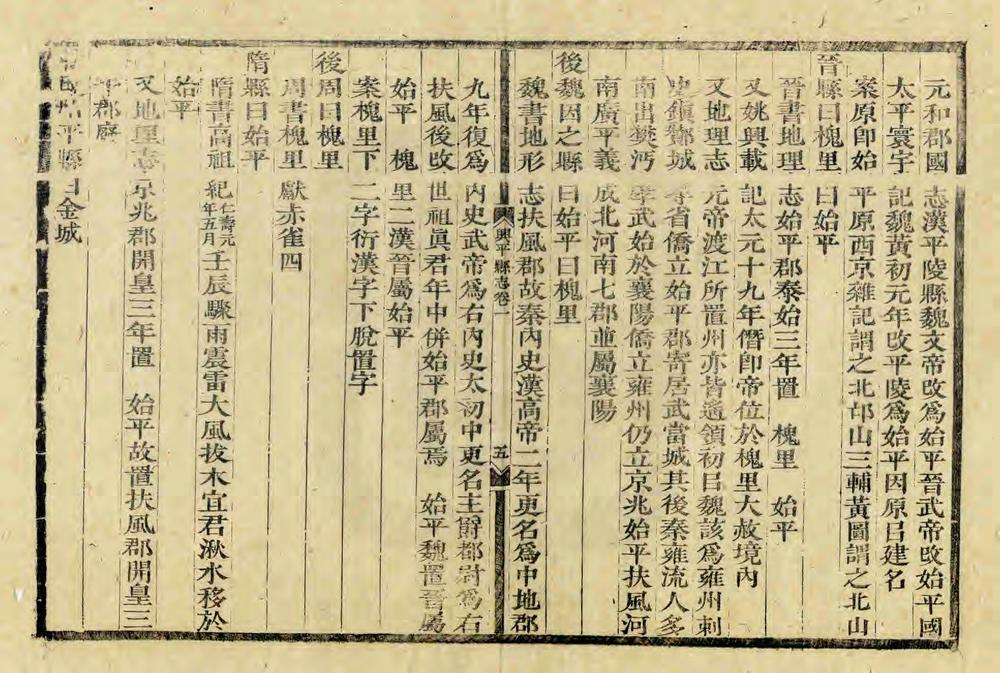 元和郡國志漢平陵縣魏文帝改爲始平晉武帝改始平國
太平寰宇記魏黃初元年改平陵爲始平因原㠯建名
案原卽始平原西京雜記謂之北邙山三輔黃圖謂之北山
晉縣曰槐里曰始平
晉書地理志始平郡泰始三年置 槐里 始平
又姚興載記太元十九年僭卽帝位於槐里大赦境內
又地理志元帝渡江所置州亦皆遙領初㠯魏該爲雍州刺
史鎮酇城尋省僑立始平郡寄居武當城其後秦雍流人多
南出樊沔孝武始於襄陽僑立雍州仍立京兆始平扶風河
南廣平義成北河南七郡並屬襄陽
後魏因之縣曰始平曰槐里
魏書地形志扶風郡故秦內史漢高帝二年更名爲中地郡
興平縣志卷一 五
九年復爲內史武帝爲右內史太初中更名主爵都尉爲右
扶風後改世祖眞君年中併始平郡屬焉 始平魏置晉屬
始平 槐里二漢晉屬始平
案槐里下二字衍漢字下脫置字
後周曰槐里
周書槐里獻赤雀四
隋縣曰始平
隋書高祖紀仁壽元年五月壬辰驟雨震雷大風拔木宜君湫水移於
始平
又地理志京兆郡開皇三年置 始平故置扶風郡開皇三
郡廢
平縣曰金城